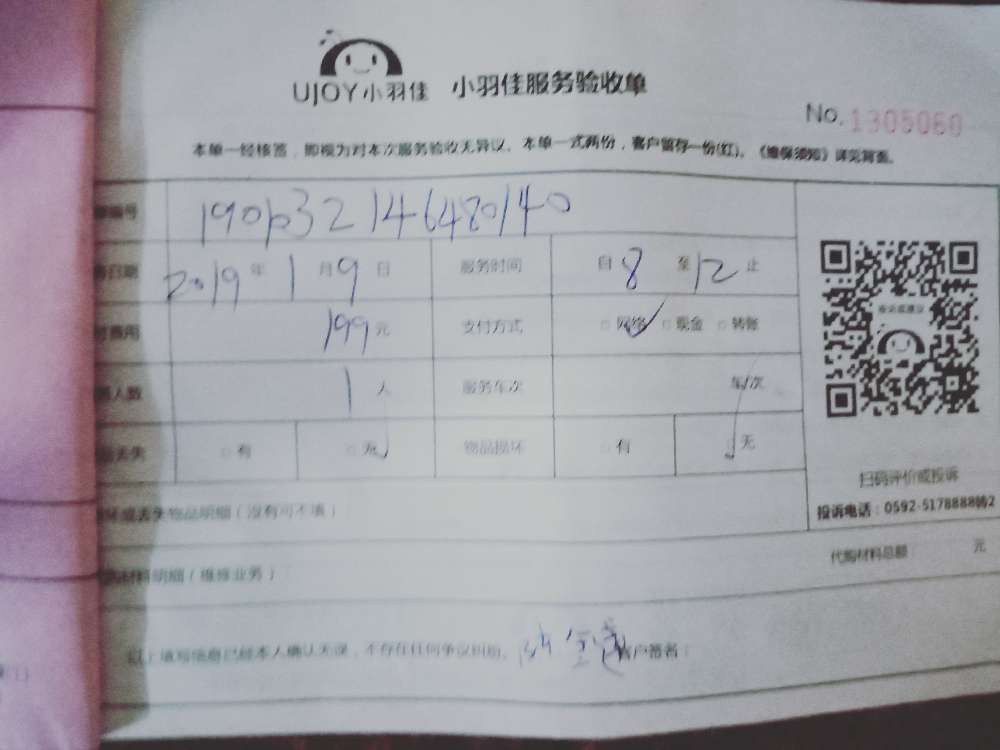 UJOY小羽佳 小羽佳服务验收单
No. 1305060
本单一经核签，即视为对本次服务验收无异议。本单一式两份，客户留存一份(红)。《维保须知》详见背面。
编号
日期 2019年1月9日 服务时间 自8至12止
费用 199元 支付方式 □网络 □现金 □转账
人数 1人 服务车次 车/次
丢失 □有 □无 物品损坏 □有 □无
扫码评价或投诉
投诉电话：0592-5178888转2
坏或丢失物品明细（没有可不填）
材料明细（维修业务） 代购材料总额： 元
以上填写信息已经本人确认无误，不存在任何争议纠纷。 客户签名：